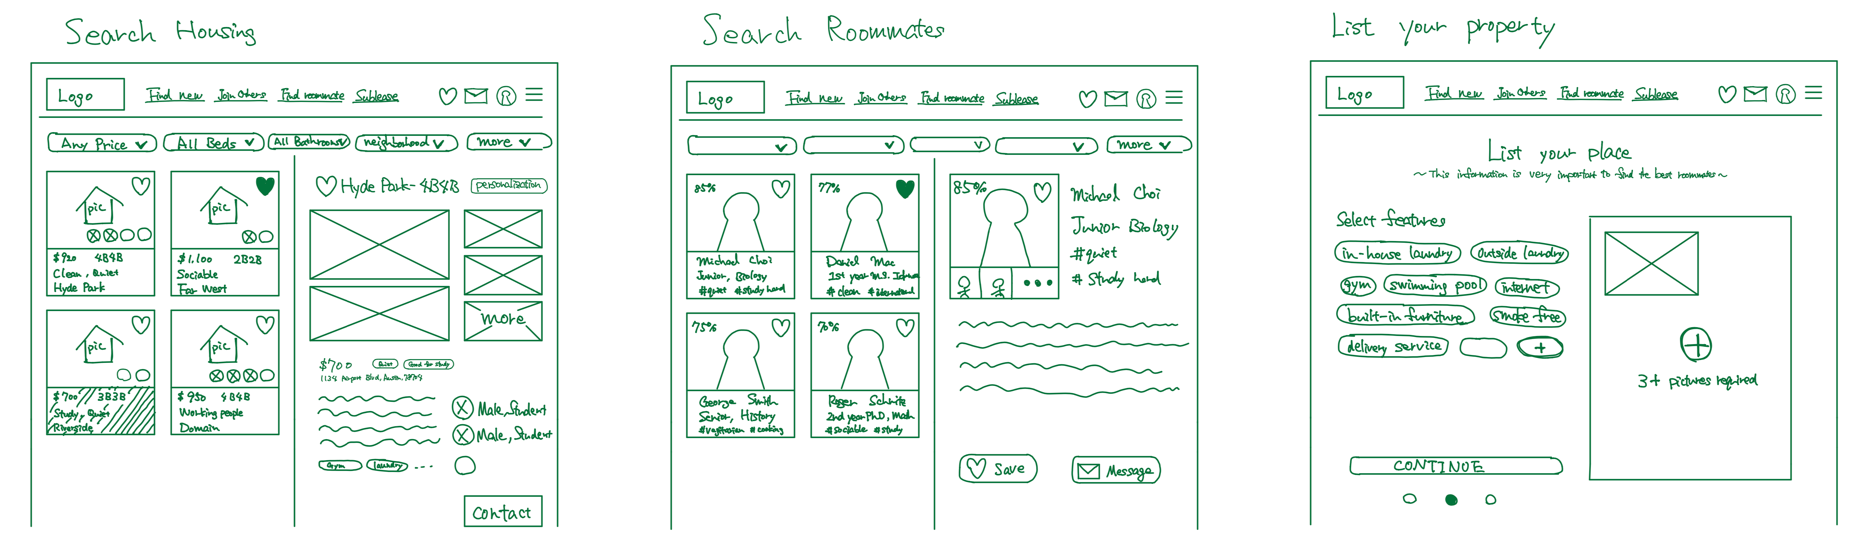 Search Housing
Logo
Find new Join Others Find roommate Sublease
R
Any Price
All Beds
All Bathrooms
neighborhood
more
pic
$920 4B4B
Clean, Quiet
Hyde Park
pic
$1,100 2B2B
Sociable
Far West
pic
$700 3B3B
Study, Quiet
Riverside
pic
$950 4B4B
Working people
Domain
Hyde Park - 4B4B
personalization
more
$700 Quiet Good for study
Airport Blvd, Austin,
Male, Student
Male, Student
Gym laundry ...
Contact
Search Roommates
Logo
Find new Join Others Find roommate Sublease
R
more
85%
Michael Choi
Junior, Biology
#quiet #study hard
77%
Daniel Mac
1st year M.S.
#clean #international
75%
George Smith
Senior, History
#vegetarian #cooking
70%
Roger
2nd year PhD, Math
#sociable #study
85%
Michael Choi
Junior Biology
#quiet
# Study hard
Save
Message
List your property
Logo
Find new Join Others Find roommate Sublease
R
List your place
~ This information is very important to find the best roommates ~
Select features
in-house laundry
Outside laundry
gym
swimming pool
internet
built-in furniture
smoke free
delivery service
+
3+ pictures required
CONTINUE